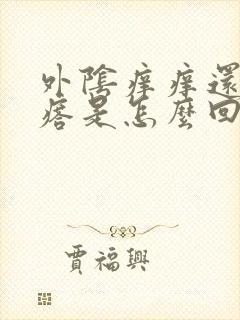 外陰痒痒還
瘩是怎麼回
賈福興